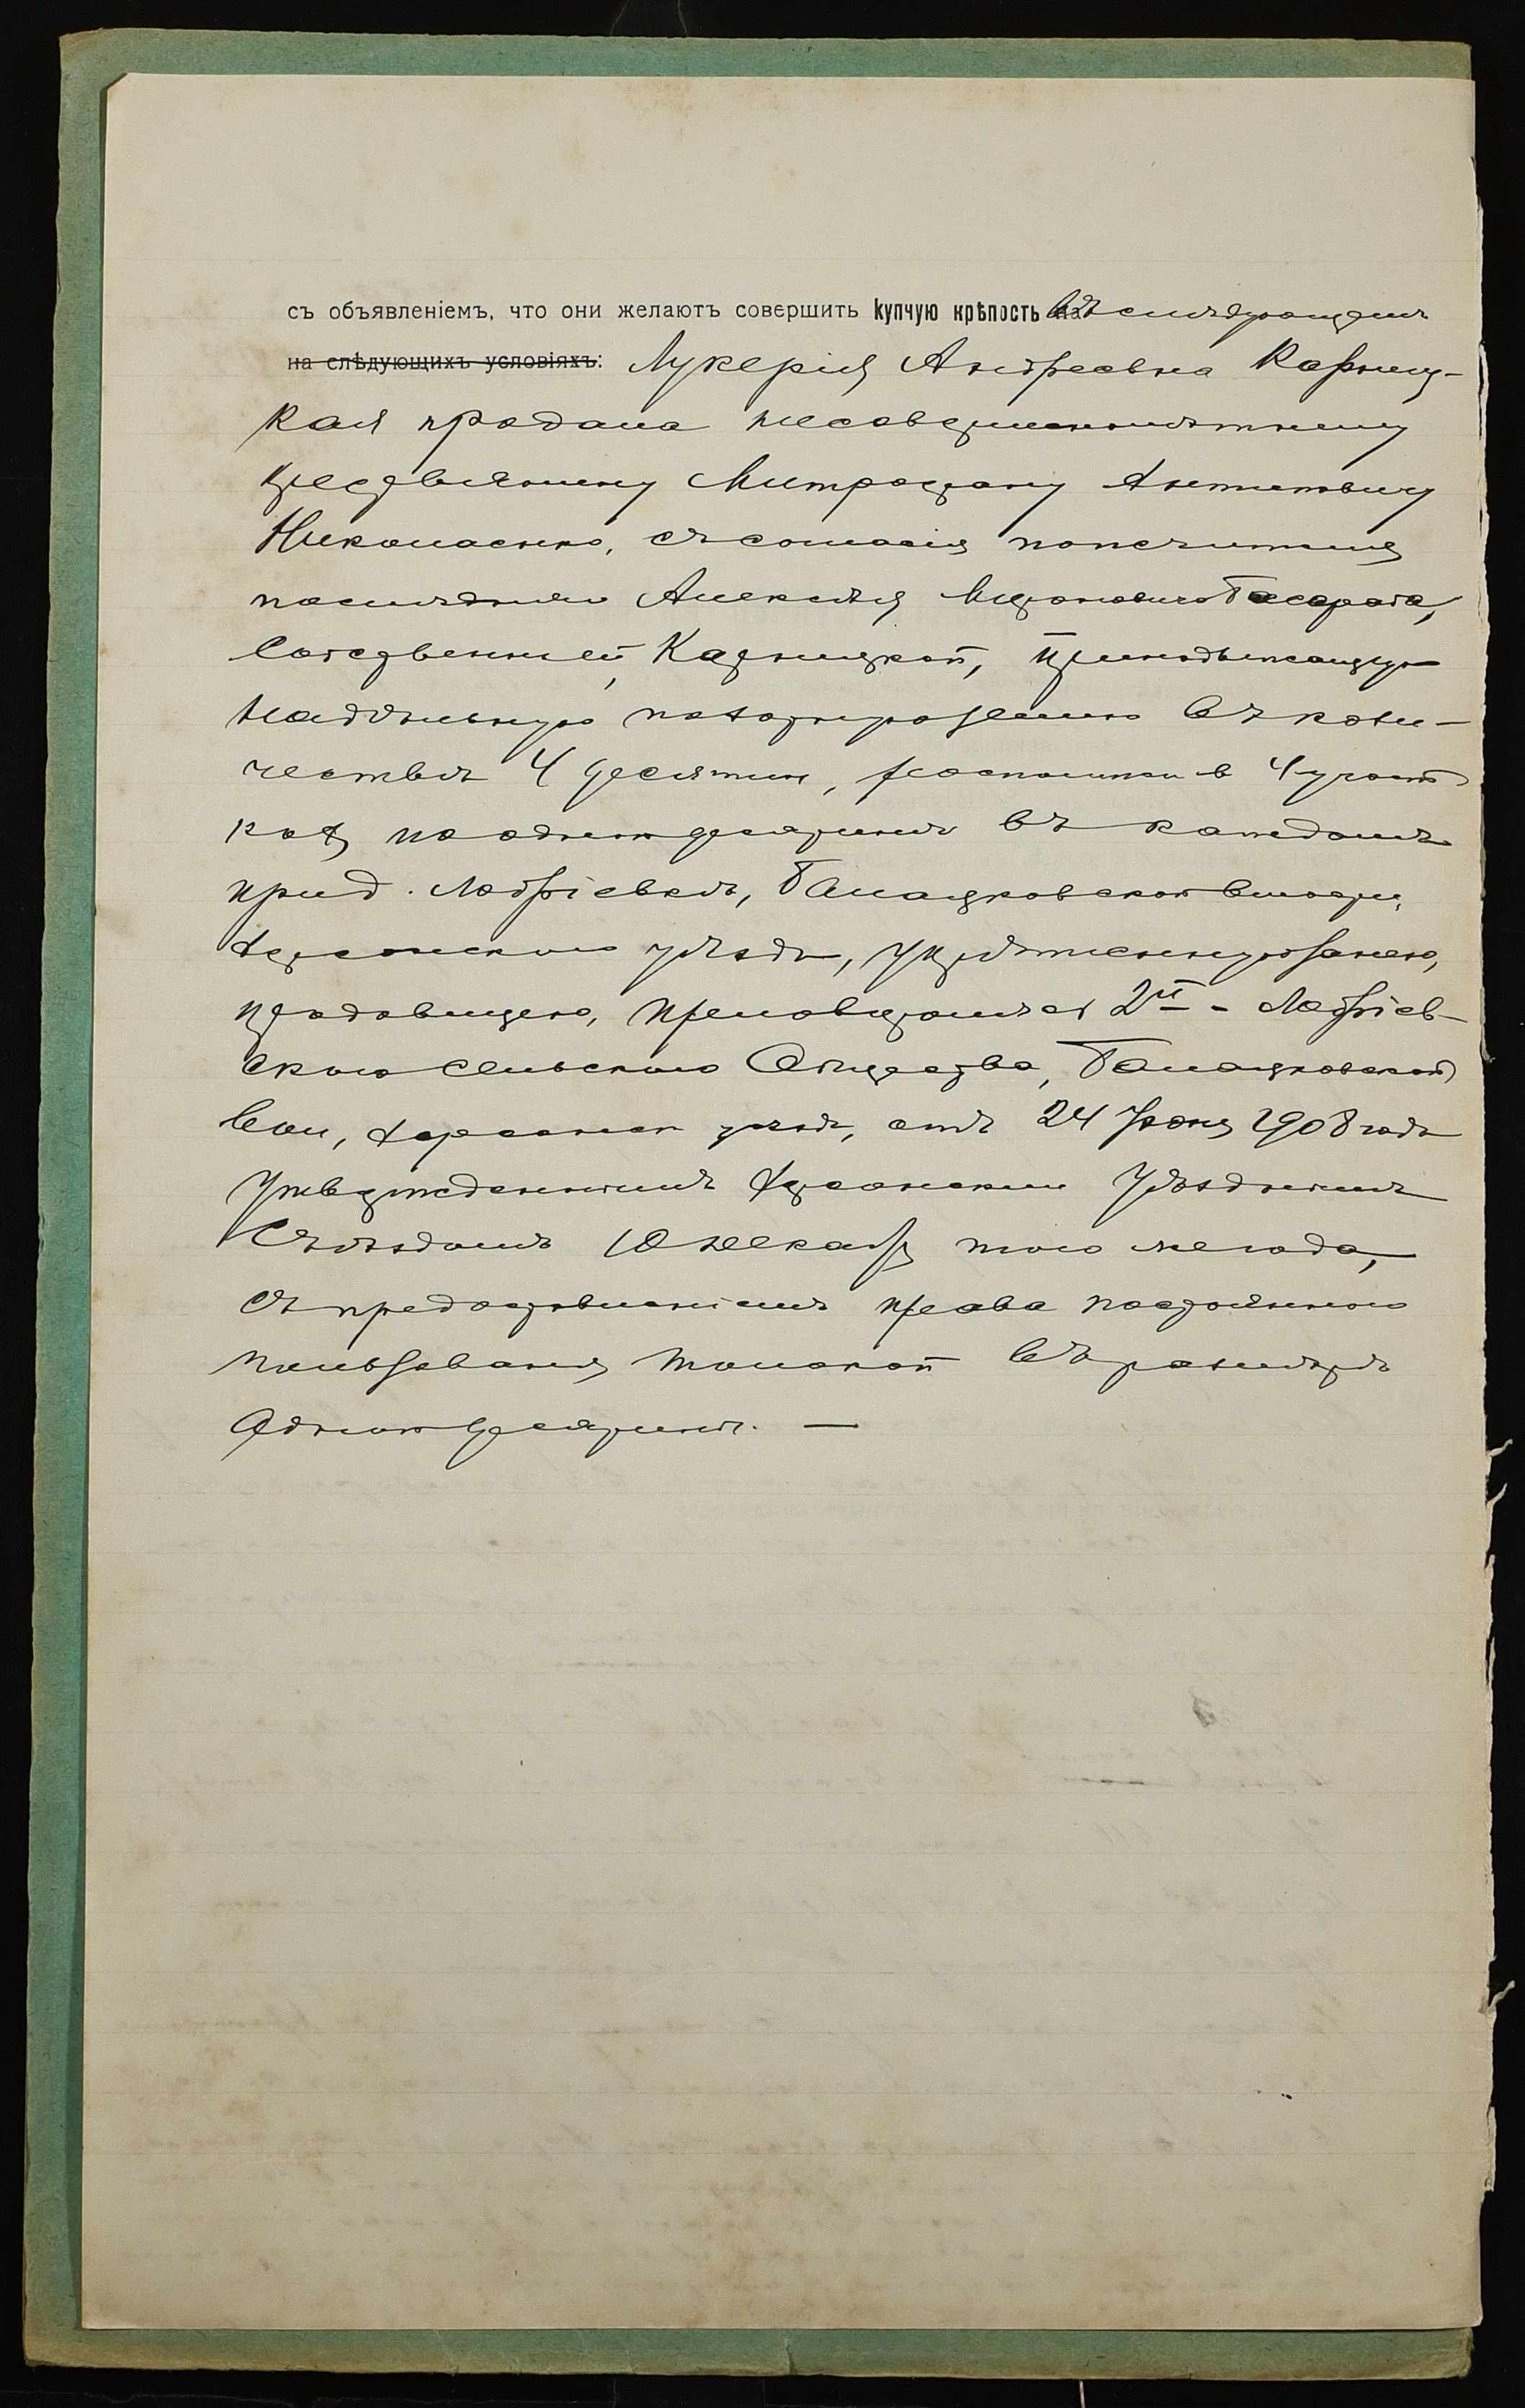 съ объявленіемъ, что они желаютъ совершить купчую крѣпость на въ слѣдующемъ
на слѣдующихъ условіяхъ: Лукерія Андреевна Карниц-
кая продала несовершеннолѣтнему
крестьянину Митрофану Антиповичу
Николаенко, съ согласія попечителя
послѣдняго Алексѣя
собственной, Карницкой, принадлежащую
надѣльную землю въ коли-
чествѣ 4 десятин, в 4 участ
ках по одной десятинѣ въ каждомъ
при д. Андріевкѣ, Балацковской волости,
Херсонскаго уѣзда, укрѣпленную за нею,
продавицею, приговоромъ 2й - Андріев-
скаго сельскаго Общества, Балацковской
вол, Херсонск уѣзд, отъ 24 1908 года
утвержденнымъ Херсонским Уѣзднымъ
Съѣздомъ 10 декабр того же года,
съ предоставленіемъ права постояннаго
пользованія толокой въ размѣрѣ
одной десятины. —